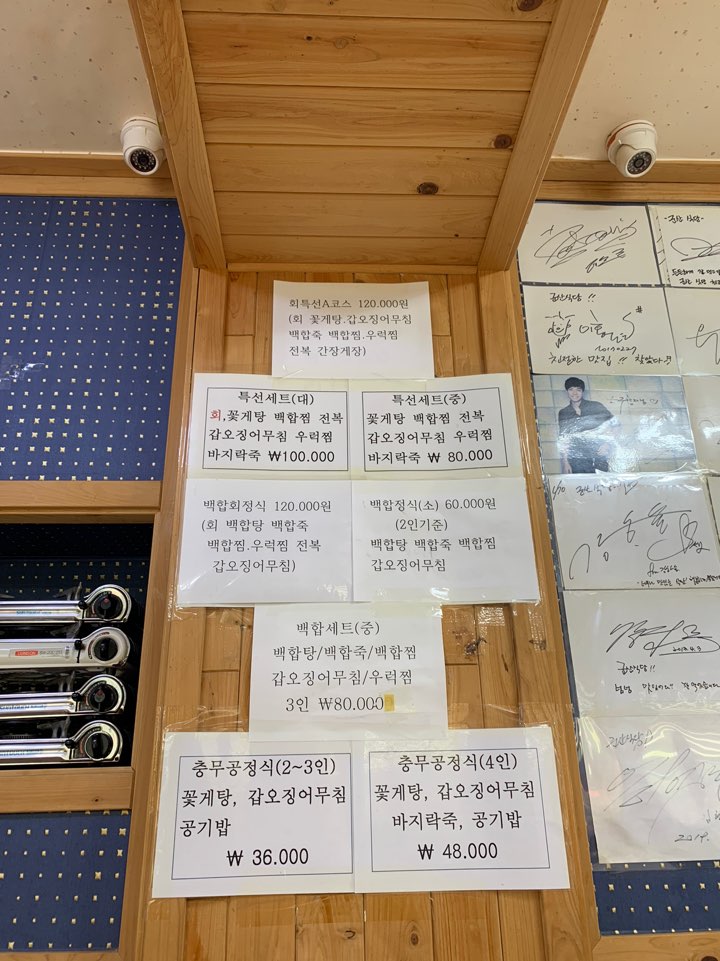 회특선A코스 120.000원
(회 꽃게탕.갑오징어무침
백합죽 백합찜.우럭찜
전복 간장게장)
특선세트(대)
회,꽃게탕 백합찜 전복
갑오징어무침 우럭찜
바지락죽 ₩100.000
특선세트(중)
꽃게탕 백합찜 전복
갑오징어무침 우럭찜
바지락죽 ₩ 80.000
백합회정식 120.000원
(회 백합탕 백합죽
백합찜.우럭찜 전복
갑오징어무침)
백합정식(소) 60.000원
(2인기준)
백합탕 백합죽 백합찜
갑오징어무침
백합세트(중)
백합탕/백합죽/백합찜
갑오징어무침/우럭찜
3인 ₩80.000
충무공정식(2~3인)
꽃게탕, 갑오징어무침
공기밥
₩ 36.000
충무공정식(4인)
꽃게탕, 갑오징어무침
바지락죽, 공기밥
₩ 48.000